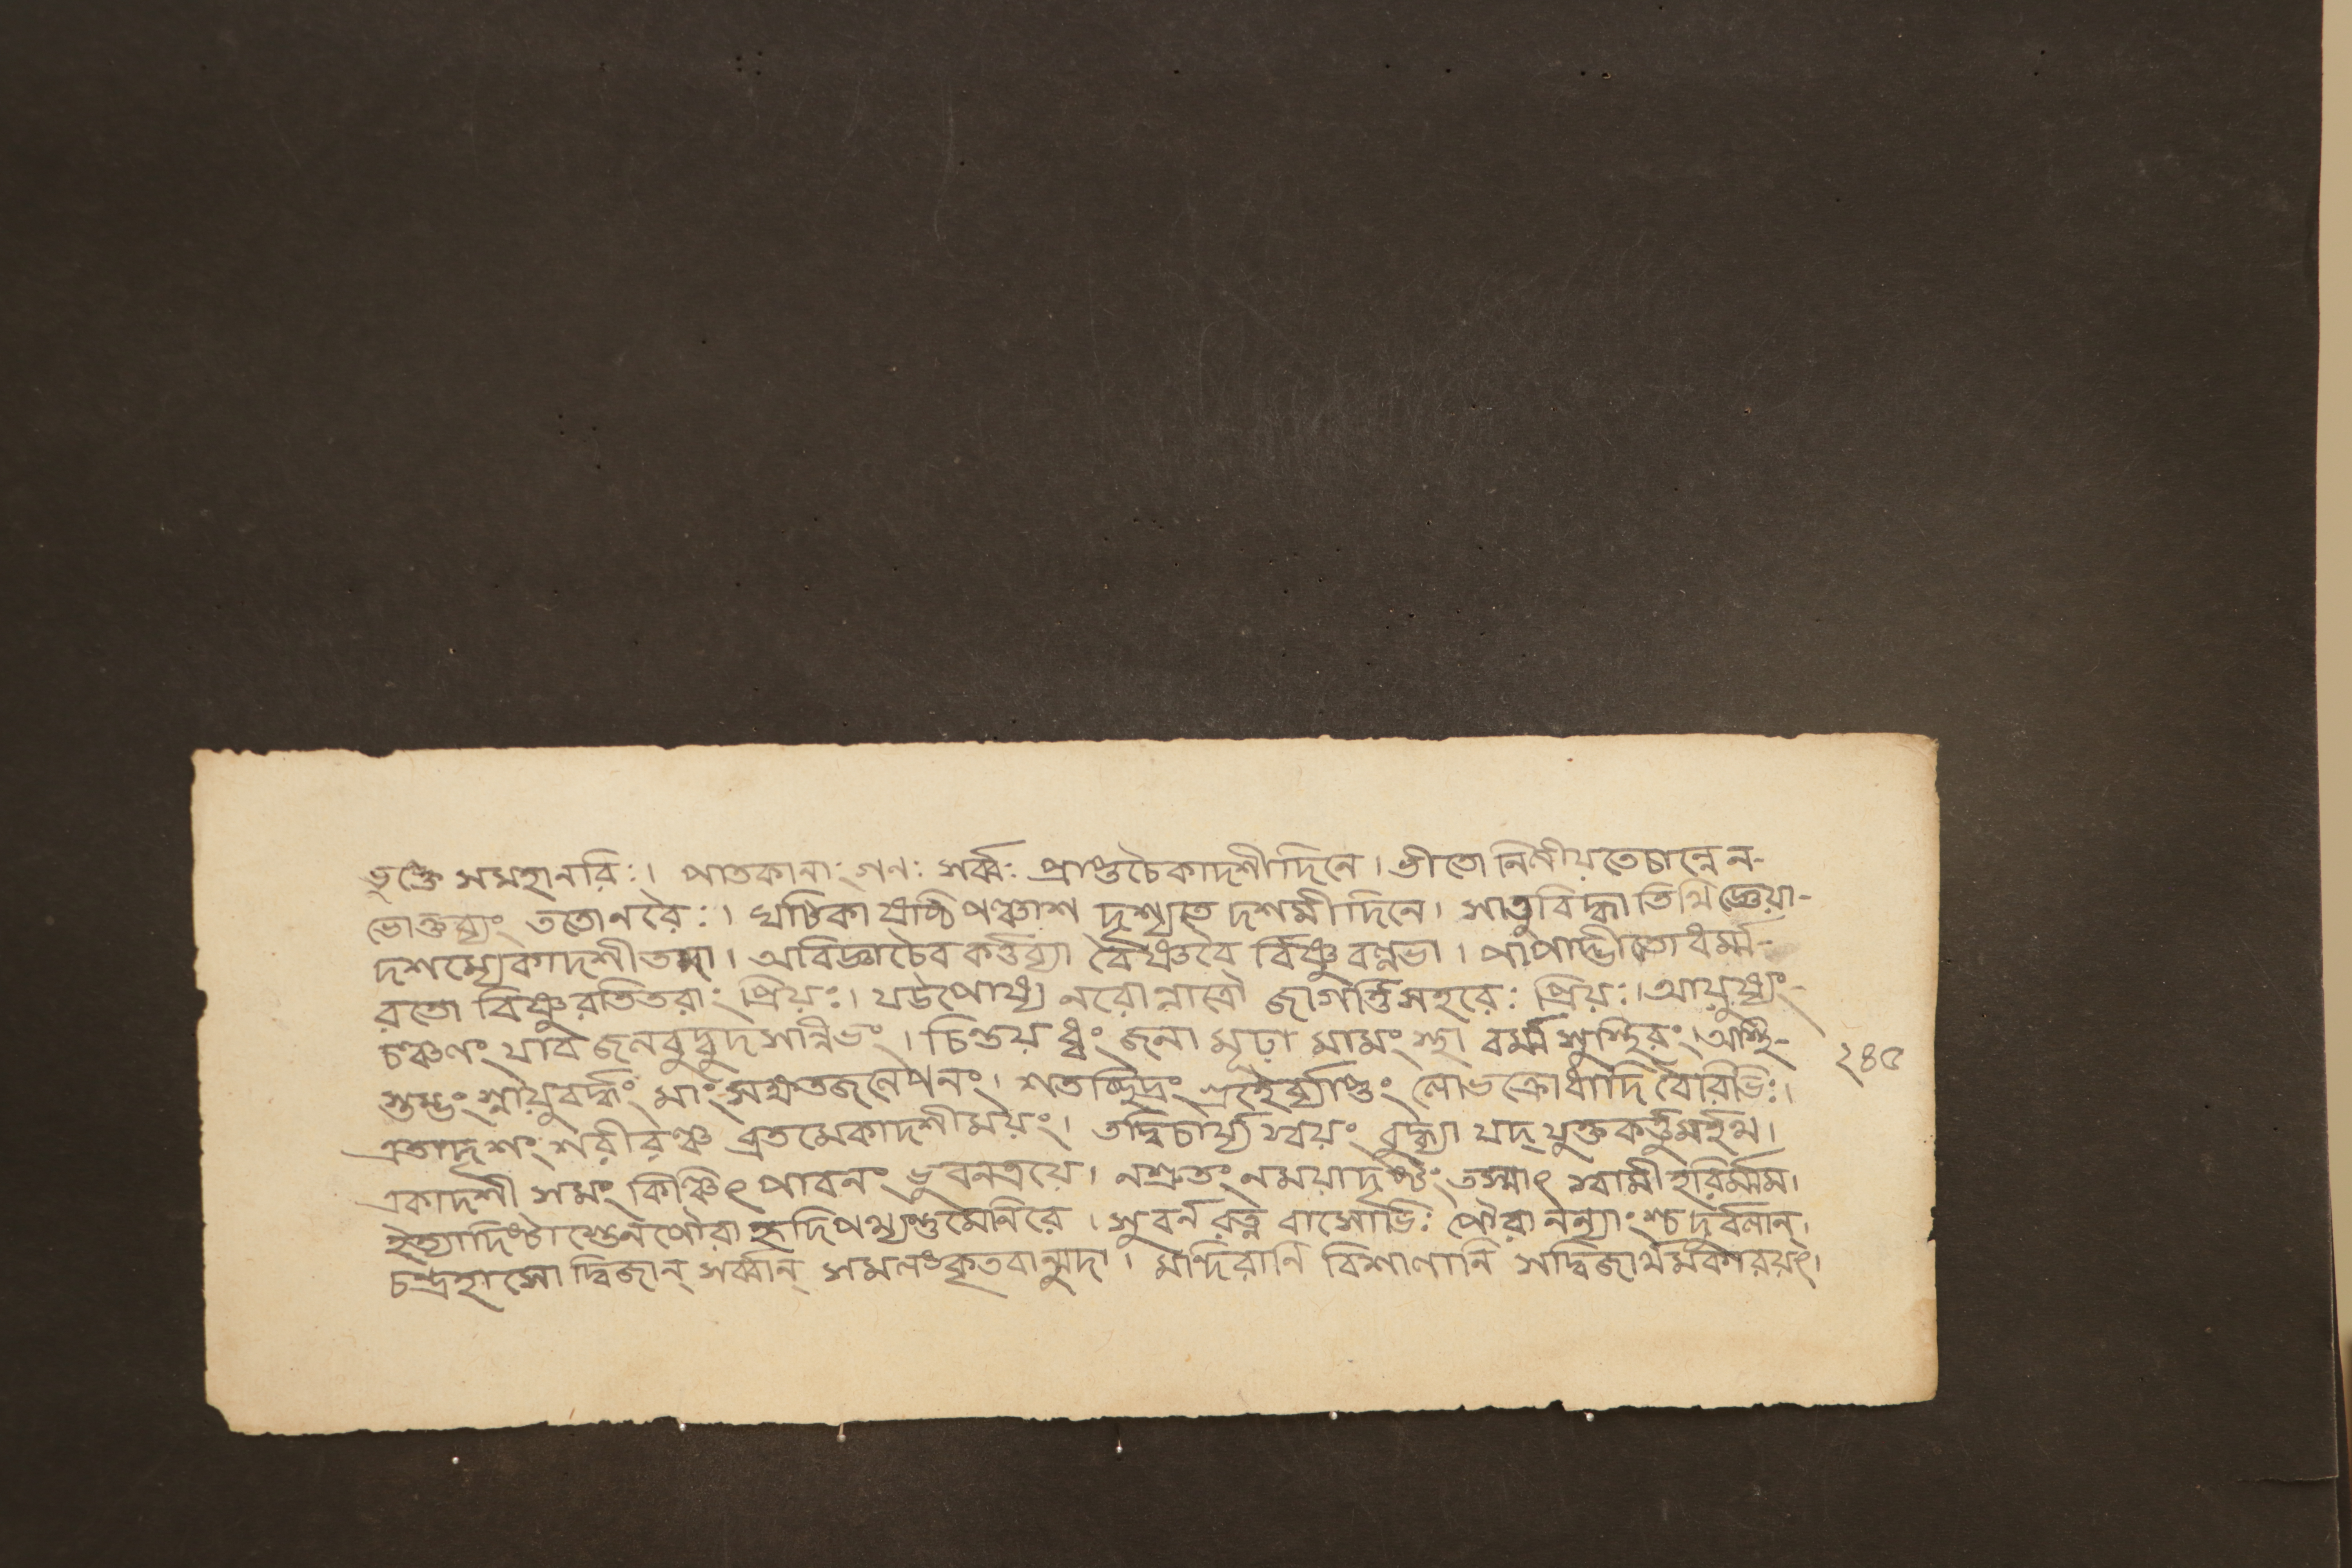 ভুক্তে সমহানরিঃ। পাতকানাং গণঃ সর্ব্বঃ প্রাপ্তচৈকাদশীদিনে। ভীতো নিলীয়তেচান্নে ন-
ভোক্তব্যং ততোনরৈঃ। ঘটিকা পঞ্চাশ দৃশ্যতে দশমীদিনে। সাতুবিদ্ধা তিথি জ্ঞেয়া-
দশম্যেকাদশী তদা। অবিদ্ধাচৈব কর্ত্তব্যা বৈষ্ণবৈ র্বিষ্ণুবল্লভা। পাপাদ্ভীতো ধর্ম্ম-
রতো বিষ্ণুরতিতরাং প্রিয়ঃ। যউপোষ্য নরোরাত্রৌ জাগর্ত্তিসহরেঃ প্রিয়ঃ। আয়ুষ্যং-
চঞ্চলং যাব জলবুদ্বুদসন্নিভং। চিন্তয়ধ্বং জনা মূঢ়া মাসং স্থা বর্ম্ম সুস্থিরং। অস্থি-
স্তম্ভং স্নায়ুবদ্ধং মাংসক্ষতজলেপনং। শতচ্ছিদ্রং লোভক্রোধাদি বৈরিভিঃ।
এতাদৃশং শরীরঞ্চ ব্রতমেকাদশীময়ং। তদ্বিচার্য্য স্বয়ং বুদ্ধ্যা যদ্ যুক্ত কর্ত্তুমর্হথ।
একাদশী সমং কিঞ্চিৎ পাবনং ভুবনত্রয়ে। নশ্রুতং নময়াদৃষ্টং তস্মাৎ স্বামী হরির্ম্মম।
ইত্যাদিষ্টাস্তেনপৌরা হৃদিপথ্যন্তুমেনিরে। সুবর্নরত্ন বাসোভিঃ পৌরানন্যাংশ্চ দুর্বলান্।
চন্দ্রহাসো দ্বিজান্ সর্ব্বান্ সমলঙ্কৃতবান্মুদা। মন্দিরানি বিশালানি সদ্বিজার্থমকারয়ৎ।
২৪৫